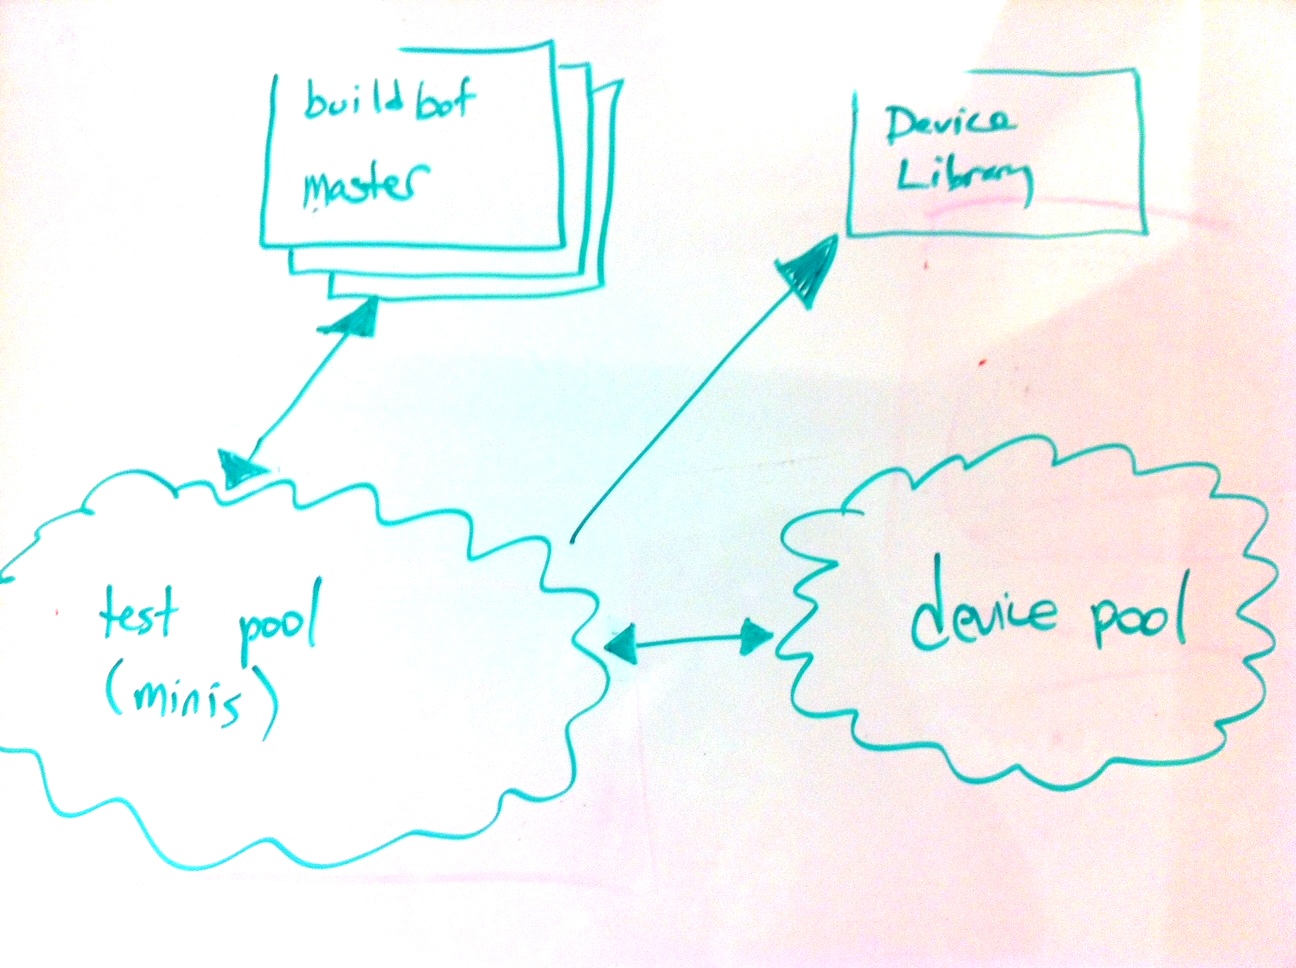 buildbot
master
Device
Library
test pool
(minis)
device pool